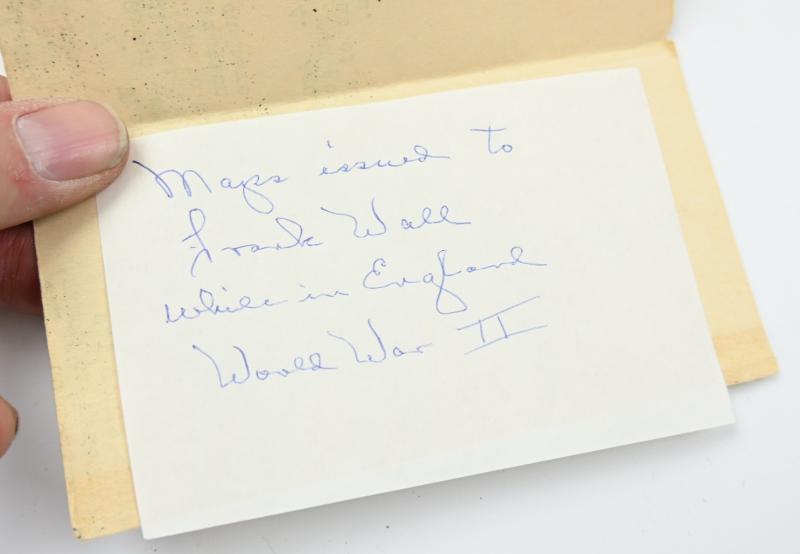 Maps issued to
Frank Wall
while in England
World War II